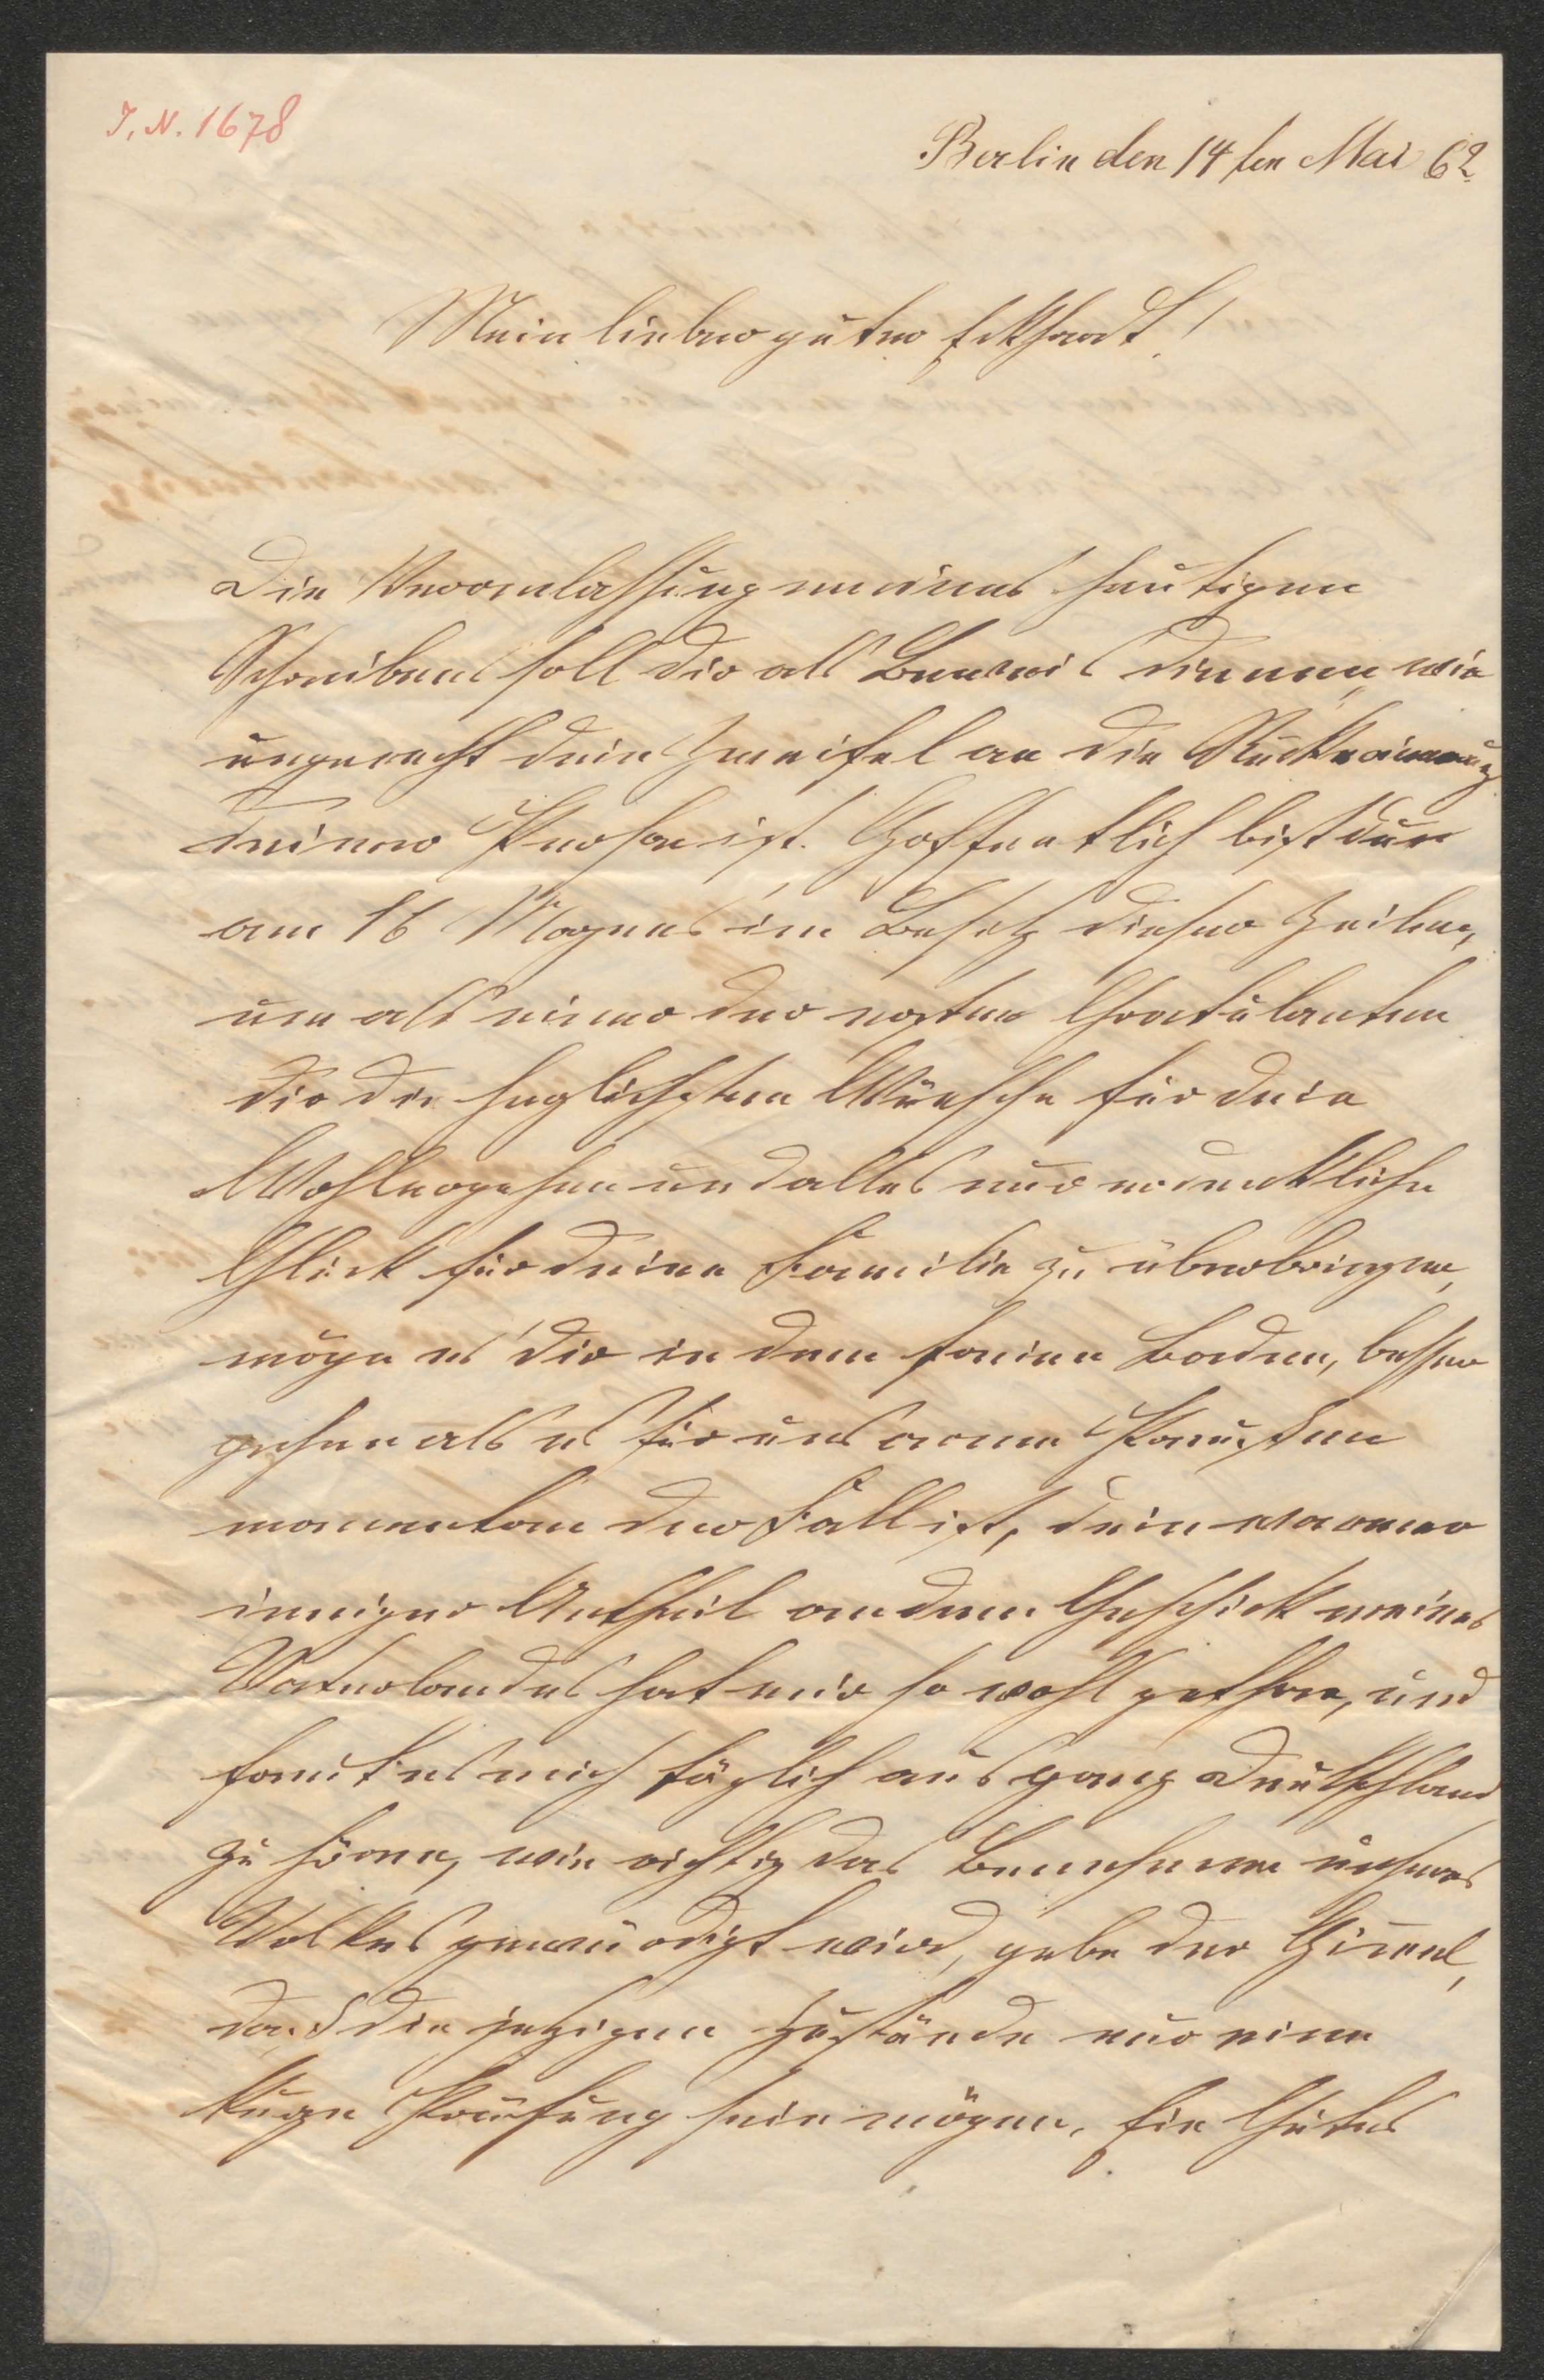 I. N. 1678
Berlin den 14ten Mai 62.
Mein lieber guter Eckhardt!
Die Veranlassung meines heutigen
Schreibens soll dir als Beweis dienen, wie
ungerecht dein Zweifel an die Rückerinnerung
deiner Person ist. Hoffentlich bist du
am 16 Morgens im Besitz dieser Zeilen,
um als einer der ersten Gratulanten
dir die herzlichsten Wünsche für dein
Wohlergehen und alles nur erdenkliche
Glück für deine Familie zu überbringen,
möge es dir in dem freien Baden, besser
gehen als es für uns arme Preußen
momentan der Fall ist, dein warmer
inniger Antheil an dem Geschick meines
Vaterlandes hat mir so wohl gethan, und
freut es mich täglich aus ganz Deutschland
zu hören, wie richtig das Benehmen unseres
Volkes gewürdigt wird, gebe der Himmel,
daß die jetzigen Zustände nur eine
kurze Prüfung sein mögen. Ein Gutes